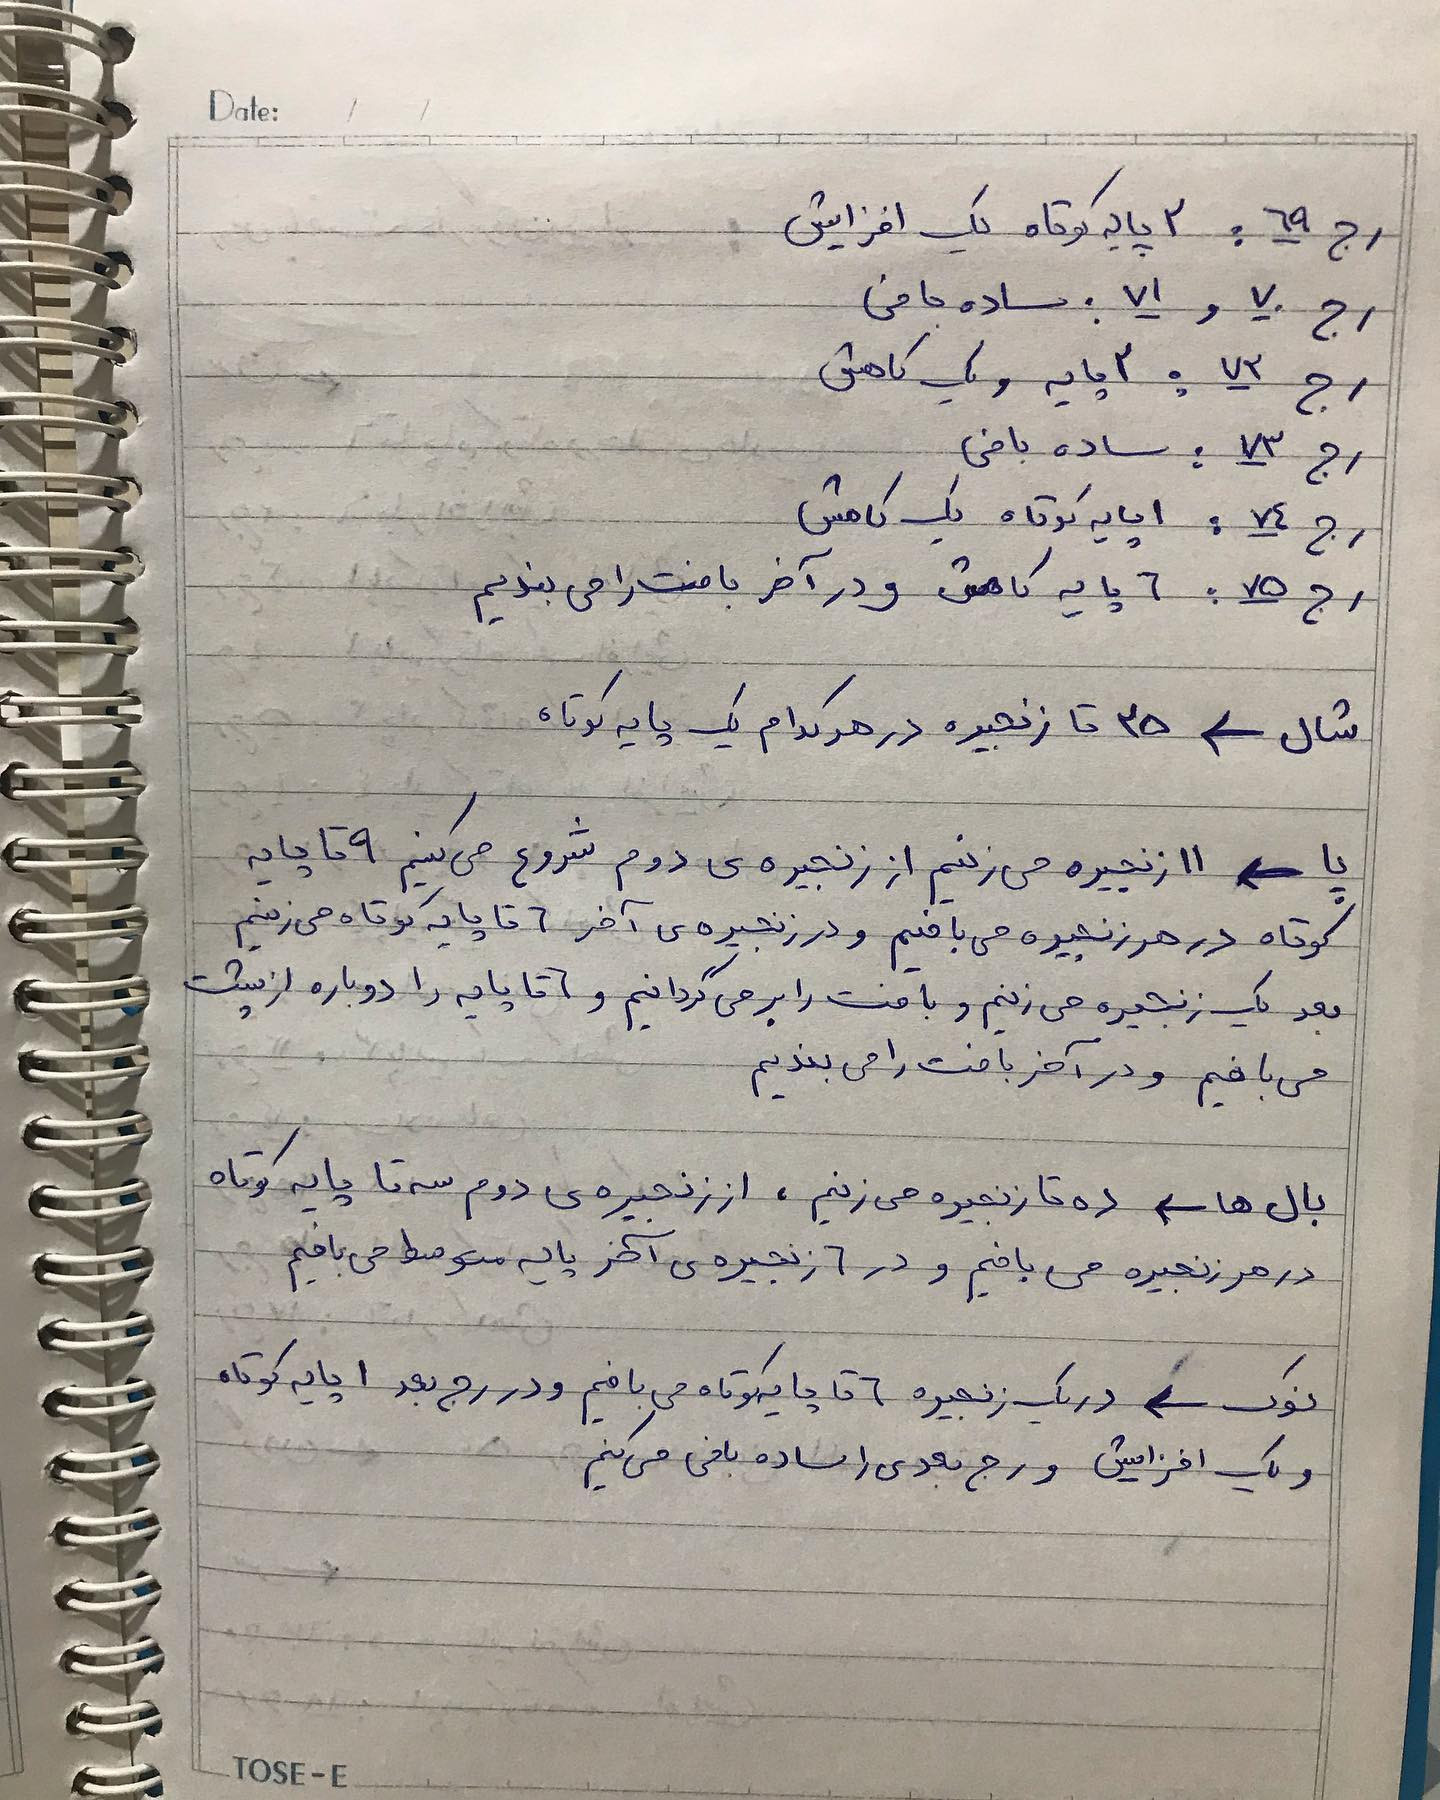 Date: / /
رج ٦٩ : ٢ پایه کوتاه یک افزایش
رج ٧٠ و ٧١ : ساده بافی
رج ٧٢ : ٢ پایه و یک کاهش
رج ٧٣ : ساده بافی
رج ٧٤ : ١ پایه کوتاه یک کاهش
رج ٧٥ : ٦ پایه کاهش و در آخر بافت را می بندیم
شال ← ٣٥ تا زنجیره در هر کدام یک پایه کوتاه
پا ← ١١ زنجیره می زنیم از زنجیره ی دوم شروع می کنیم ٩ تا پایه
کوتاه در هر زنجیره می بافیم و در زنجیره ی آخر ٦ تا پایه کوتاه می زنیم
بعد یک زنجیره می زنیم و بافت را بر می گردانیم و ٦ تا پایه را دوباره از پشت
می بافیم و در آخر بافت را می بندیم
بال ها ← ده تا زنجیره می زنیم ، از زنجیره ی دوم سه تا پایه کوتاه
در هر زنجیره می بافیم و در ٦ زنجیره ی آخر پایه متوسط می بافیم
نوک ← در یک زنجیره ٦ تا پایه کوتاه می بافیم و در رج بعد ١ پایه کوتاه
و یک افزایش و رج بعدی را ساده بافی می کنیم
TOSE-E